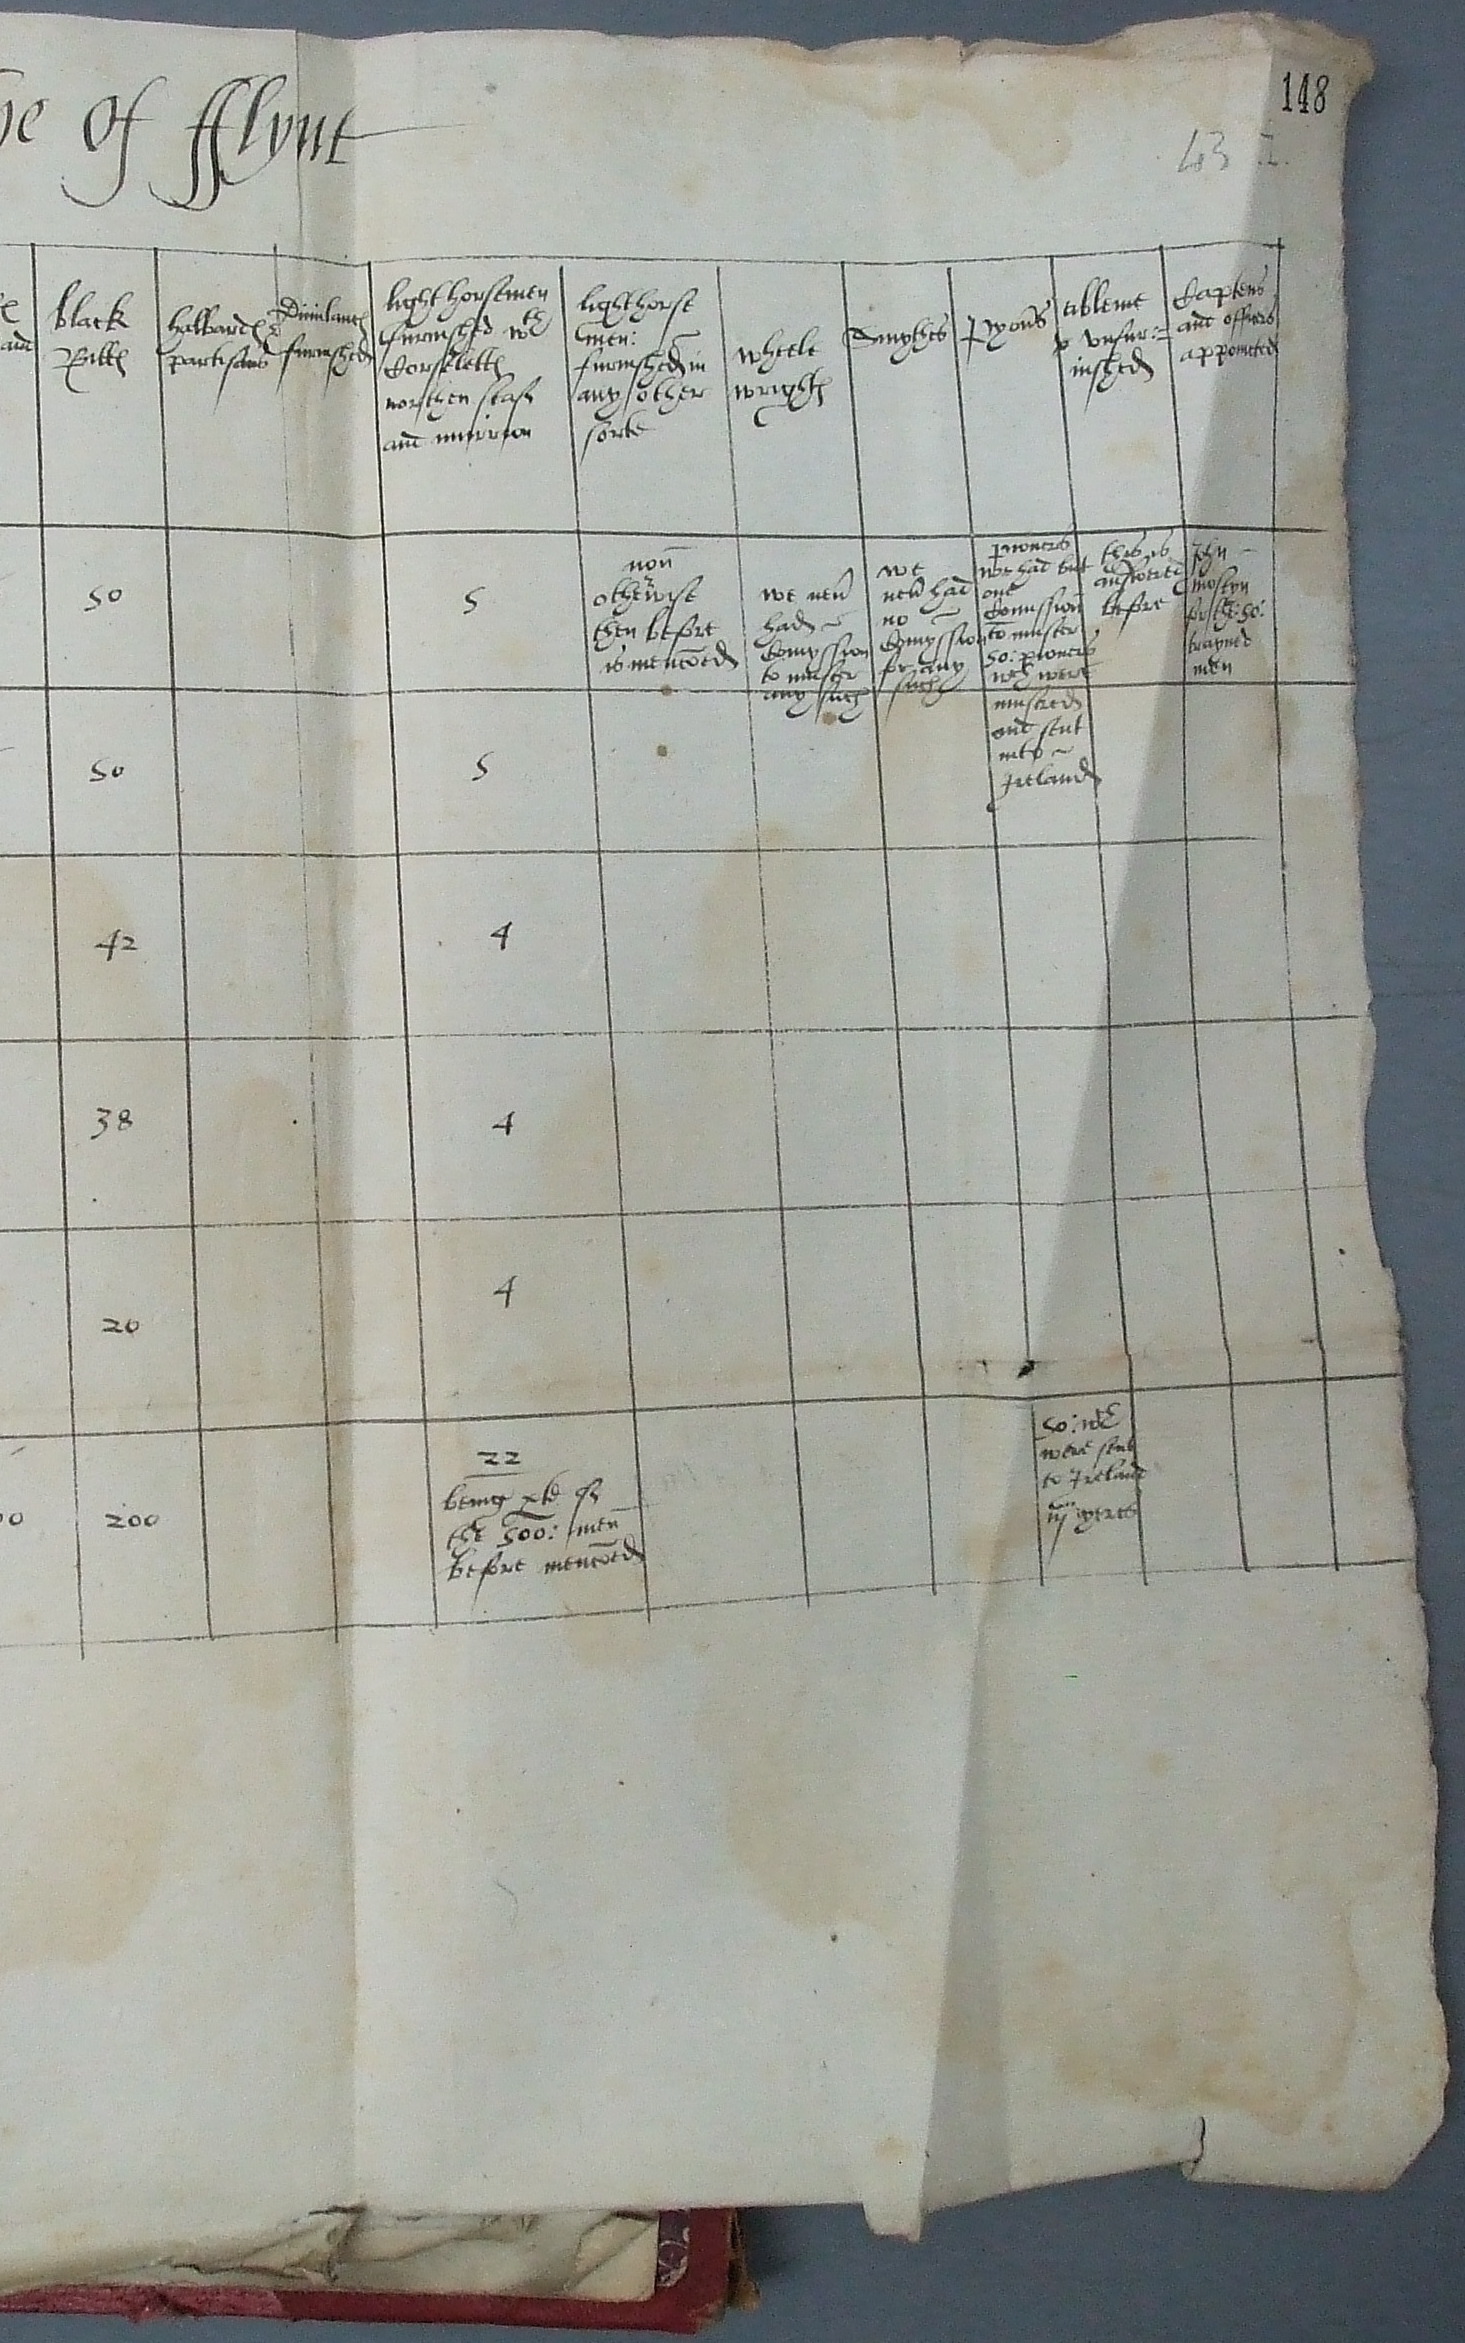 148
of fflynt
43
black
Billes
halbardes &
partisans
Dimilances
furnished
light horsemen
furnished wth
Corselettes
northen staf
and murrion
light horse
men:
furnished in
any other
sorte
wheele
wrightes
Smythes
Pyoners
able me
unfur:
nished
Captens
and officers
appointed
50
5
non
otherwise
then before
is mencoed
we nevr
had
Comyssion
to muster
any such
we
nevr had
no
Comyssion
for any
such
pioners
we had but
one
Comission
to muster
50: pioners
wch were
mustred
and sent
into
Ireland
this is
answered
before
John
mostyn
for the: 50:
trayned
men
50
5
42
4
38
4
20
4
200
22
being pte of
the 500: men
before mencoed
50: wch
were sent
to Ireland
iij yeres